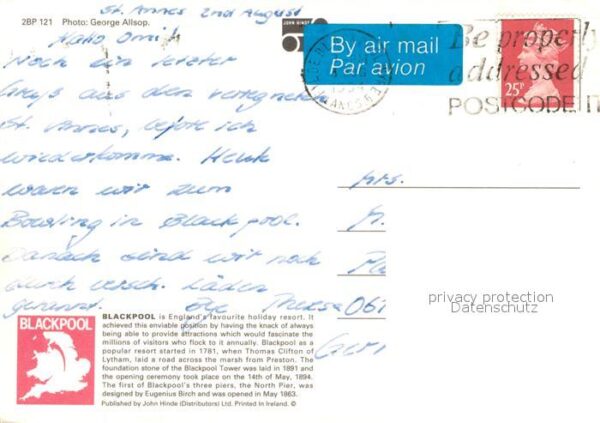 St. Annes 2nd August
2BP 121 Photo: George Allsop.
Hallo Omi!
Noch ein letzter
Gruß aus dem verregneten
St. Annes, before ich
wiederkomme. Heute
waren wir zum
Bowling in Blackpool.
Danach sind wir noch
durch versch. Läden
gerannt. Bye Theresa
JOHN HINDE
By air mail
Par avion
Be properly
addressed
POSTCODE IT
25P
Mrs.
M.
061
Ger
privacy protection
Datenschutz
BLACKPOOL
BLACKPOOL is England's favourite holiday resort. It
achieved this enviable position by having the knack of always
being able to provide attractions which would fascinate the
millions of visitors who flock to it annually. Blackpool as a
popular resort started in 1781, when Thomas Clifton of
Lytham, laid a road across the marsh from Preston. The
foundation stone of the Blackpool Tower was laid in 1891 and
the opening ceremony took place on the 14th of May, 1894.
The first of Blackpool's three piers, the North Pier, was
designed by Eugenius Birch and was opened in May 1863.
Published by John Hinde (Distributors) Ltd. Printed in Ireland. ©